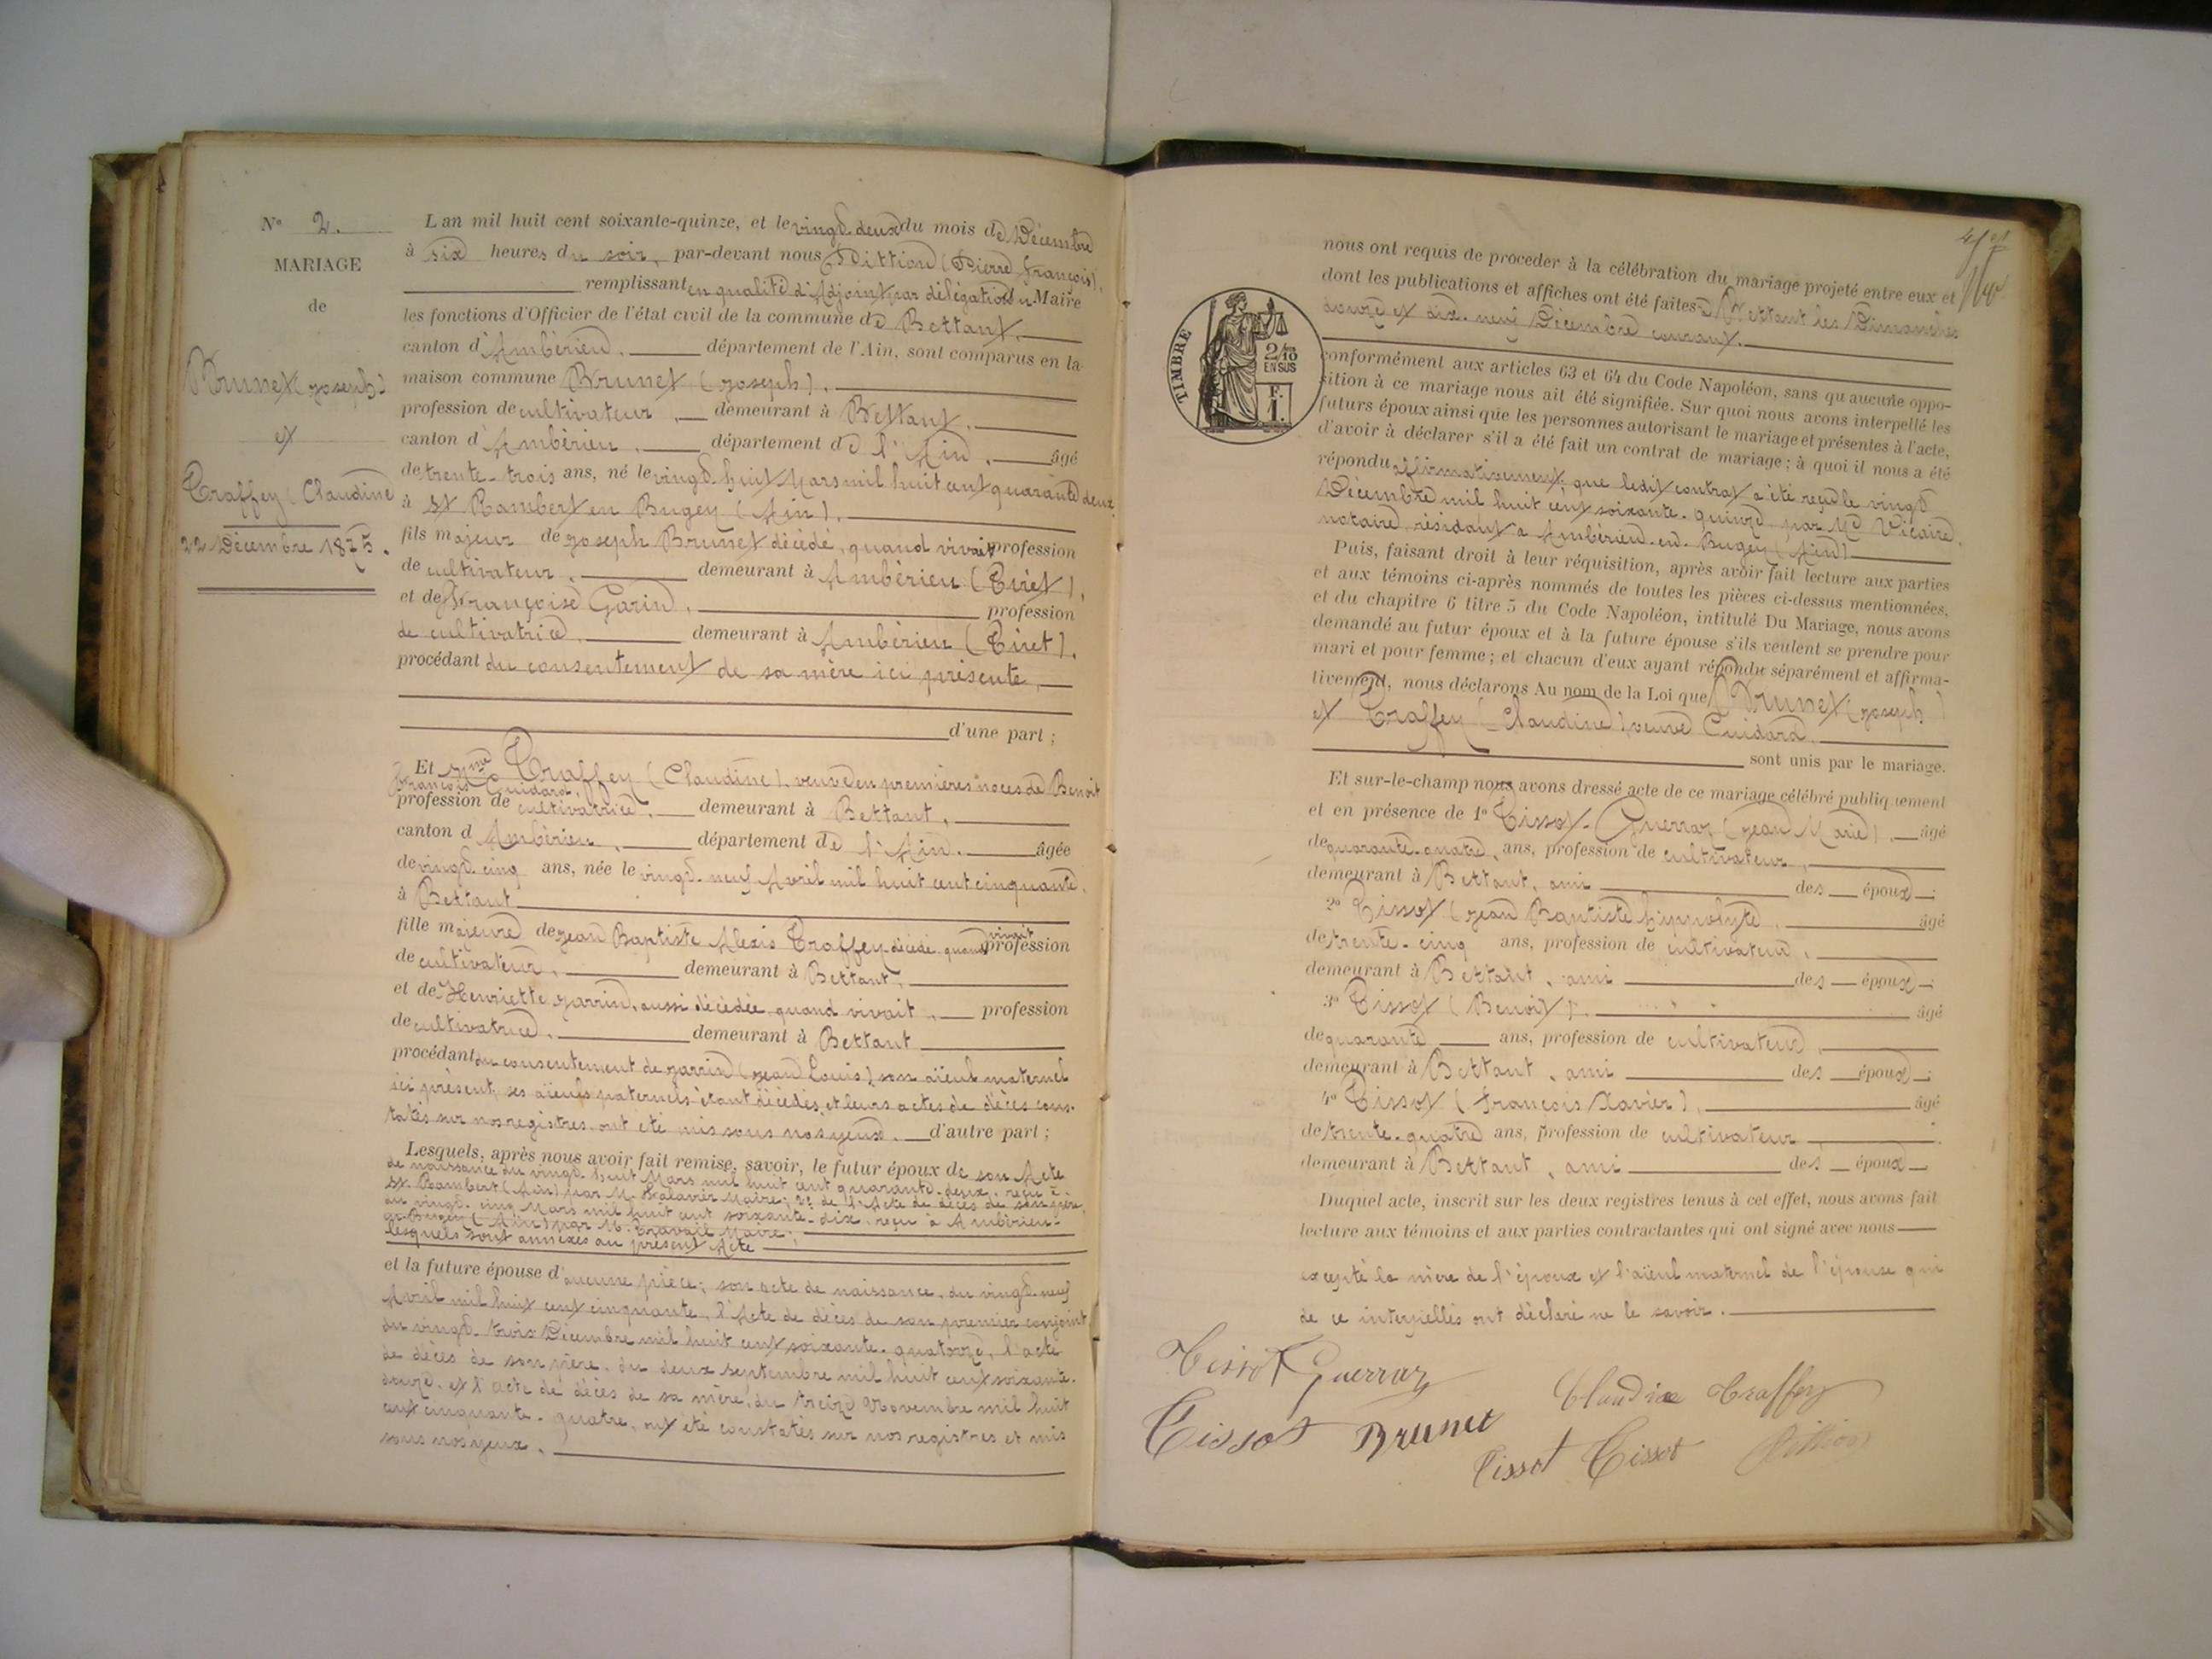 N° 2.
MARIAGE
de
Brunet (Joseph)
et
Traffey (Claudine
22 Décembre 1875.
L'an mil huit cent soixante-quinze, et le vingt-deux du mois de Décembre
à six heures du soir, par-devant nous Pittion (Pierre François),
remplissant en qualité d'Adjoint par délégation du Maire
les fonctions d'Officier de l'état civil de la commune de Bettant,
canton d'Ambérieu, département de l'Ain, sont comparus en la
maison commune Brunet (Joseph),
profession de cultivateur, demeurant à Bettant,
canton d'Ambérieu, département de l'Ain, âgé
de trente-trois ans, né le vingt-huit Mars mil huit cent quarante deux,
à St Rambert en Bugey (Ain),
fils majeur de Joseph Brunet décédé, quand vivait profession
de cultivateur, demeurant à Ambérieu (Tiret),
et de Françoise Garin, profession
de cultivatrice, demeurant à Ambérieu (Tiret),
procédant du consentement de sa mère ici présente,
d'une part ;
Et Mme Traffey (Claudine), veuve en premières noces de Benoit
François Cuidard,
profession de cultivatrice, demeurant à Bettant,
canton d'Ambérieu, département de l'Ain, âgée
de vingt-cinq ans, née le vingt-neuf Avril mil huit cent cinquante,
à Bettant
fille majeure de Jean Baptiste Alexis Traffey décédé, quand vivait profession
de cultivateur, demeurant à Bettant,
et de Henriette Jarrin, aussi décédée, quand vivait, profession
de cultivatrice, demeurant à Bettant
procédant du consentement de Jarrin (Jean Louis), son aïeul maternel
ici présent, ses aïeuls paternels étant décédés, et leurs actes de décès cons-
tatés sur nos registres, ont été mis sous nos yeux, d'autre part ;
Lesquels, après nous avoir fait remise, savoir, le futur époux de son Acte
de naissance du vingt-huit Mars mil huit cent quarante-deux, reçu à
St Rambert (Ain) par M. Maire; 2° de l'Acte de décès de son père,
du vingt-cinq Mars mil huit cent soixante-dix, reçu à Ambérieu-
en-Bugey (Ain) par M. Travail Maire;
lesquels sont annexés au présent Acte
et la future épouse d'aucune pièce; son acte de naissance, du vingt-neuf
Avril mil huit cent cinquante, l'Acte de décès de son premier conjoint,
du vingt-trois Décembre mil huit cent soixante-quatorze, l'acte
de décès de son père, du deux septembre mil huit cent soixante-
douze, et l'acte de décès de sa mère, du treize Novembre mil huit
cent cinquante-quatre, ont été constatés sur nos registres et mis
sous nos yeux.
TIMBRE
2/10
EN SUS
F.
1.
nous ont requis de procéder à la célébration du mariage projeté entre eux et
dont les publications et affiches ont été faites à Bettant les Dimanches
douze et dix-neuf Décembre courant.
conformément aux articles 63 et 64 du Code Napoléon, sans qu'aucune oppo-
sition à ce mariage nous ait été signifiée. Sur quoi nous avons interpellé les
futurs époux ainsi que les personnes autorisant le mariage et présentes à l'acte,
d'avoir à déclarer s'il a été fait un contrat de mariage ; à quoi il nous a été
répondu affirmativement, que ledit contrat a été reçu le vingt
Décembre mil huit cent soixante-quinze, par Me Vicaire,
notaire, résidant à Ambérieu-en-Bugey (Ain)
Puis, faisant droit à leur réquisition, après avoir fait lecture aux parties
et aux témoins ci-après nommés de toutes les pièces ci-dessus mentionnées,
et du chapitre 6 titre 5 du Code Napoléon, intitulé Du Mariage, nous avons
demandé au futur époux et à la future épouse s'ils veulent se prendre pour
mari et pour femme ; et chacun d'eux ayant répondu séparément et affirma-
tivement, nous déclarons Au nom de la Loi que Brunet (Joseph)
et Traffey (Claudine) veuve Cuidard,
sont unis par le mariage.
Et sur-le-champ nous avons dressé acte de ce mariage célébré publiquement
et en présence de 1° Tissot-Guerraz (Jean Marie), âgé
de quarante-quatre, ans, profession de cultivateur,
demeurant à Bettant, ami des époux ;
2° Tissot (Jean Baptiste hyppolyte, âgé
de trente-cinq ans, profession de cultivateur,
demeurant à Bettant, ami des époux ;
3° Tissot (Benoit), âgé
de quarante ans, profession de cultivateur,
demeurant à Bettant, ami des époux ;
4° Tissot (François Xavier), âgé
de trente-quatre ans, profession de cultivateur,
demeurant à Bettant, ami des époux
Duquel acte, inscrit sur les deux registres tenus à cet effet, nous avons fait
lecture aux témoins et aux parties contractantes qui ont signé avec nous
excepté la mère de l'époux et l'aïeul maternel de l'épouse qui
de ce interpellés ont déclaré ne le savoir.
Tissot Guerraz
Claudine Traffey
Tissot Brunet
Tissot Tissot Pittion